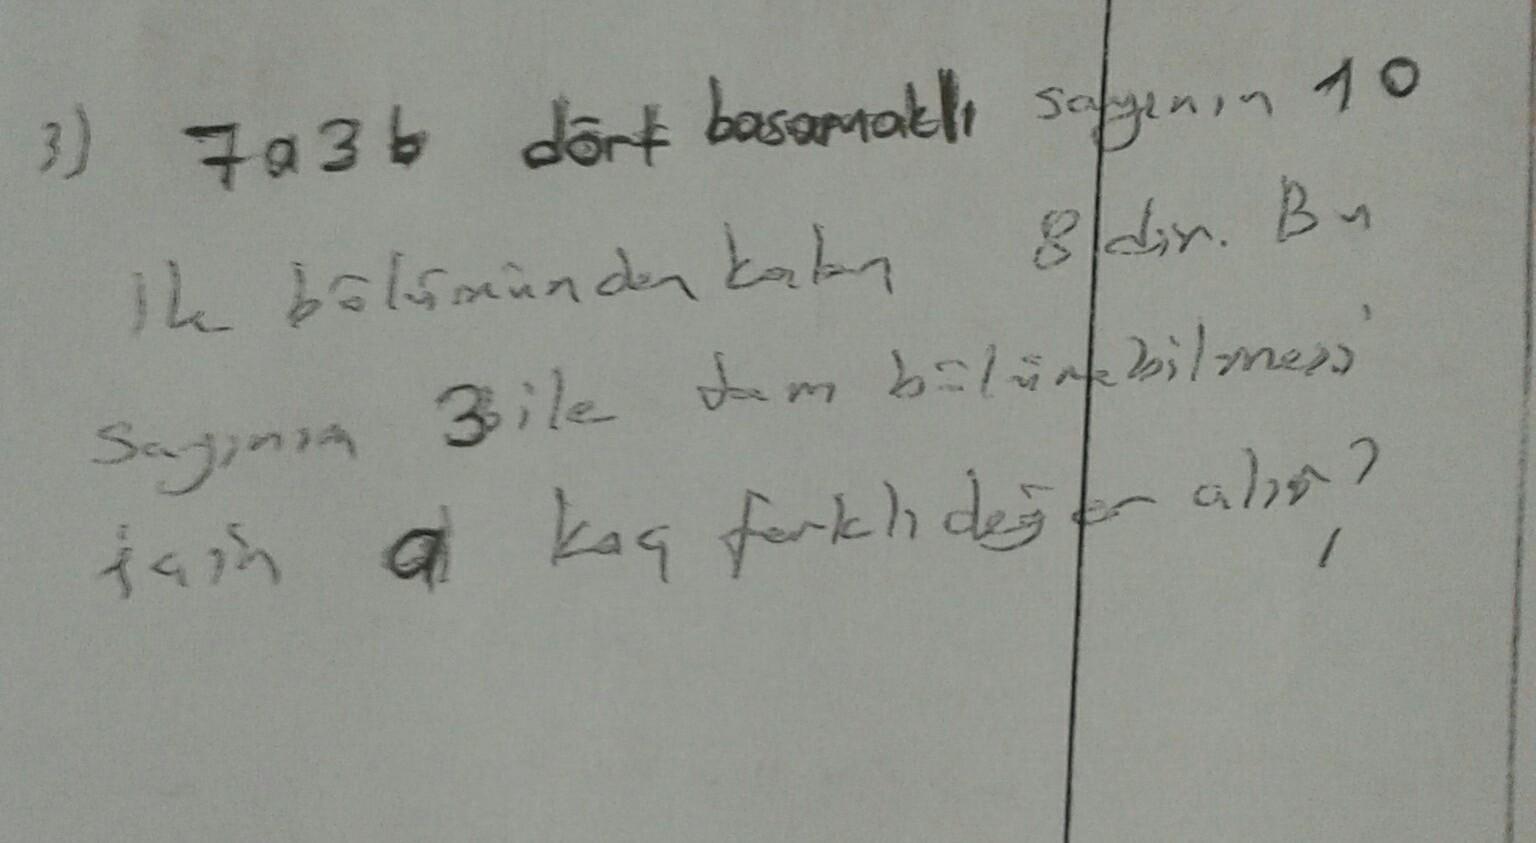 3) 7a3b dört basamaklı sayının 10
ile bölümünden kalan 8 dir. Bu
sayının 3 ile tam bölünebilmesi
için a kaç farklı değer alır?